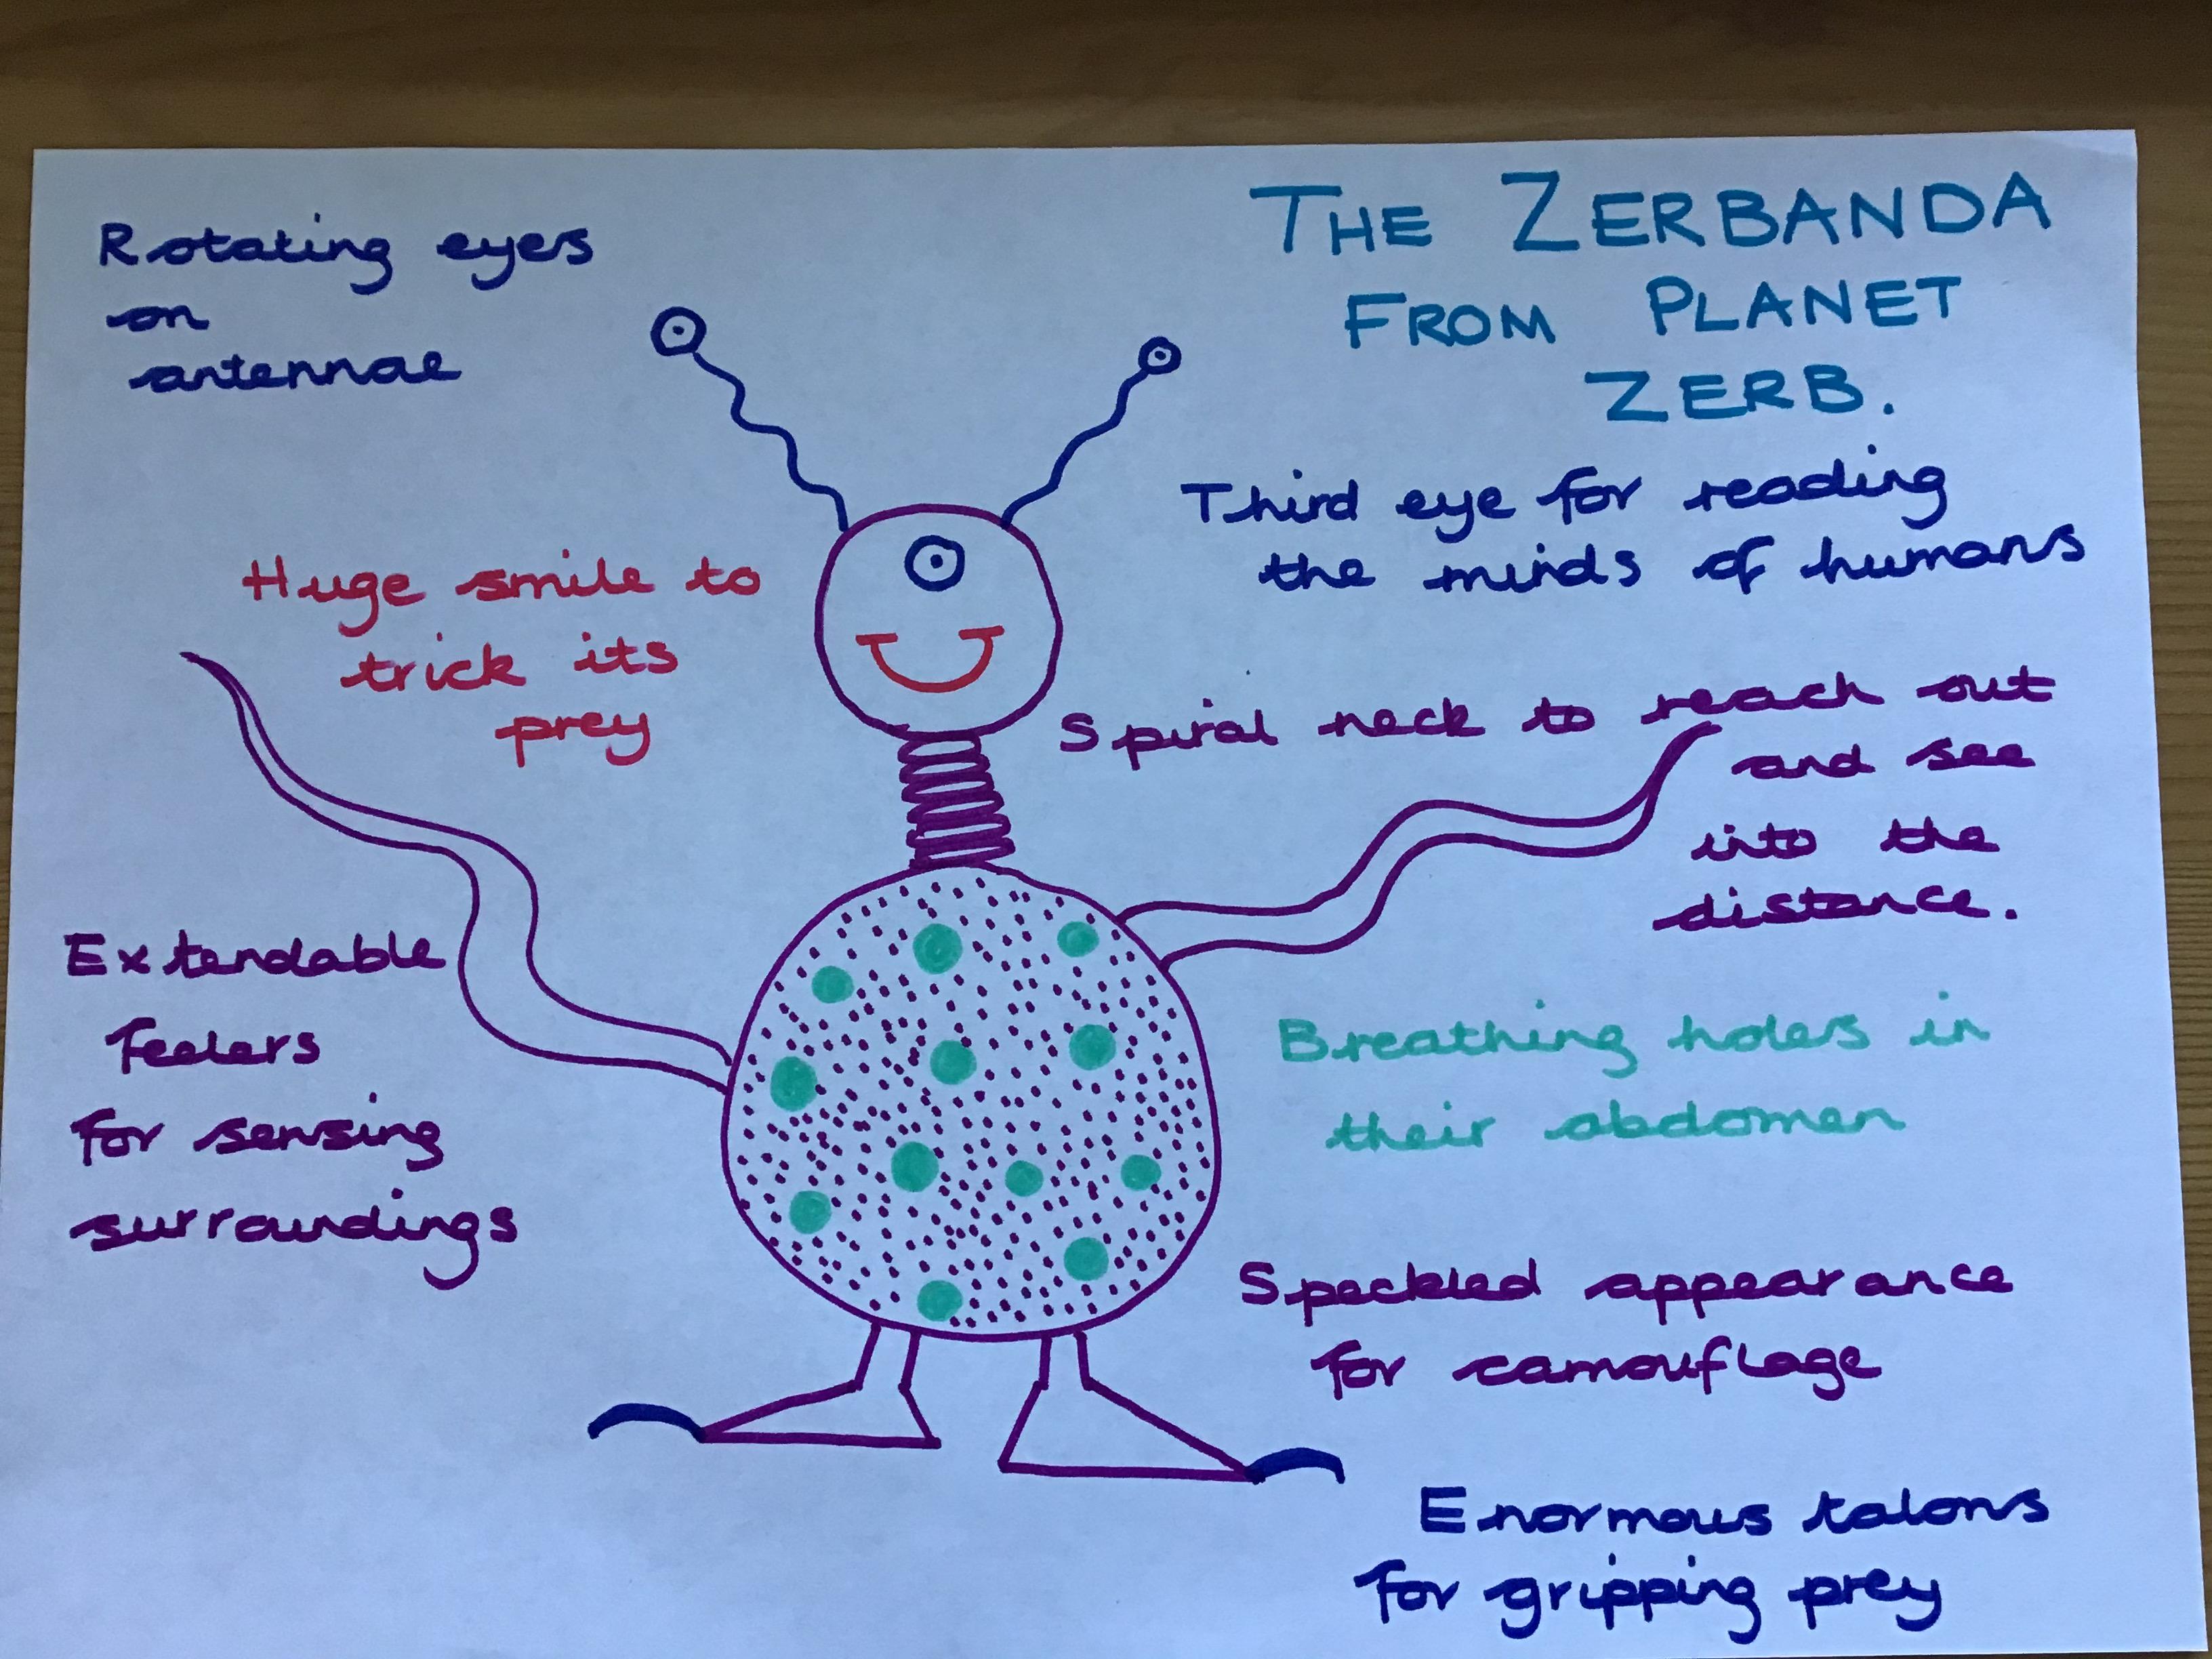 THE ZERBANDA
FROM PLANET
ZERB.
Rotating eyes
on
antennae
Third eye for reading
the minds of humans
Huge smile to
trick its
prey
Spiral neck to reach out
and see
into the
distance.
Extendable
feelers
for sensing
surroundings
Breathing holes in
their abdomen
Speckled appearance
for camouflage
Enormous talons
for gripping prey